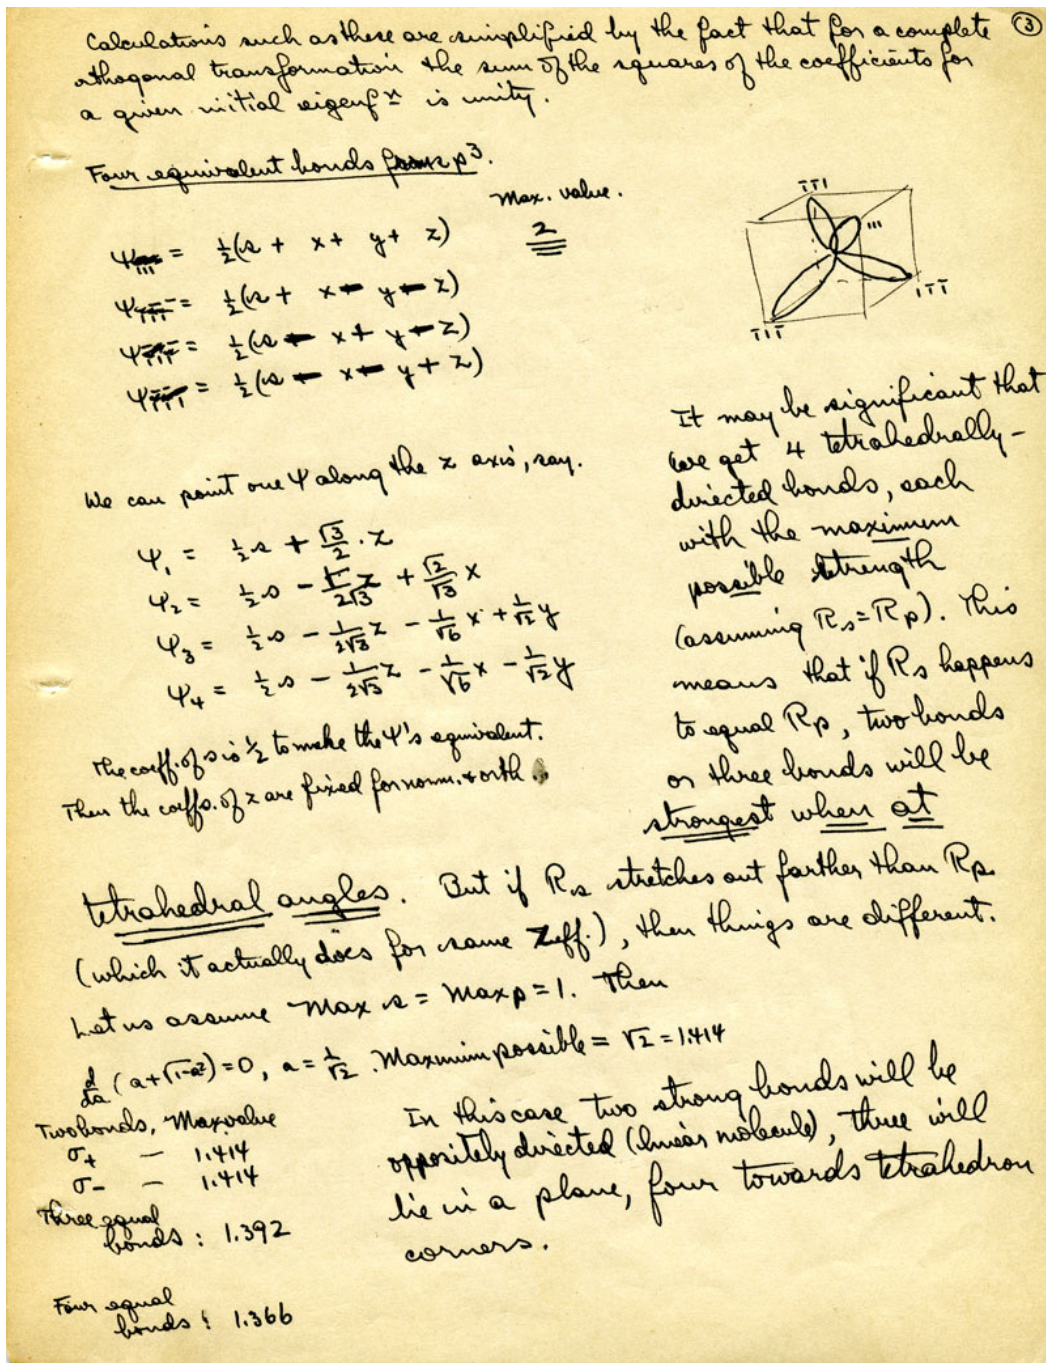 Calculations such as these are simplified by the fact that for a complete ③
othogonal transformation the sum of the squares of the coefficients for
a given initial eigenfⁿ is unity.
Four equivalent bonds from p³.
Max. value.
ψ₁₁₁ = ½(s + x + y + z) 2
ψ₁₁̄₁̄ = ½(s + x - y - z)
ψ₁̄₁₁̄ = ½(s - x + y - z)
ψ₁̄₁̄₁ = ½(s - x - y + z)
1̄1̄1
111
11̄1̄
1̄11̄
We can point one ψ along the z axis, say.
ψ₁ = ½s + √3/2 · z
ψ₂ = ½s - 1/2√3 z + √2/√3 x
ψ₃ = ½s - 1/2√3 z - 1/√6 x + 1/√2 y
ψ₄ = ½s - 1/2√3 z - 1/√6 x - 1/√2 y
The coeff. of s is ½ to make the ψ's equivalent.
Then the coeffs. of z are fixed for norm. + orth.
It may be significant that
we get 4 tetrahedrally-
directed bonds, each
with the maximum
possible strength
(assuming Rs = Rp). This
means that if Rs happens
to equal Rp, two bonds
or three bonds will be
strongest when at
tetrahedral angles. But if Rs stretches out farther than Rp
(which it actually does for same Zeff.), then things are different.
Let us assume Max s = Max p = 1. Then
d/da (a + √1-a²) = 0, a = 1/√2. Maximum possible = √2 = 1.414
Two bonds, Max value
σ+ — 1.414
σ- — 1.414
Three equal
bonds : 1.392
Four equal
bonds : 1.366
In this case two strong bonds will be
oppositely directed (linear molecule), three will
lie in a plane, four towards tetrahedron
corners.